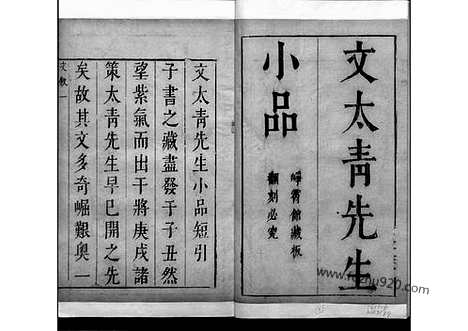 文太青先生
小品
崢霄館藏板
翻刻必究
文太青先生小品短引
子書之藏盡發于子丑然
望紫氣而出干將庚戌諸
策太青先生早已開之先
矣故其文多奇崛艱奧一
文敘一